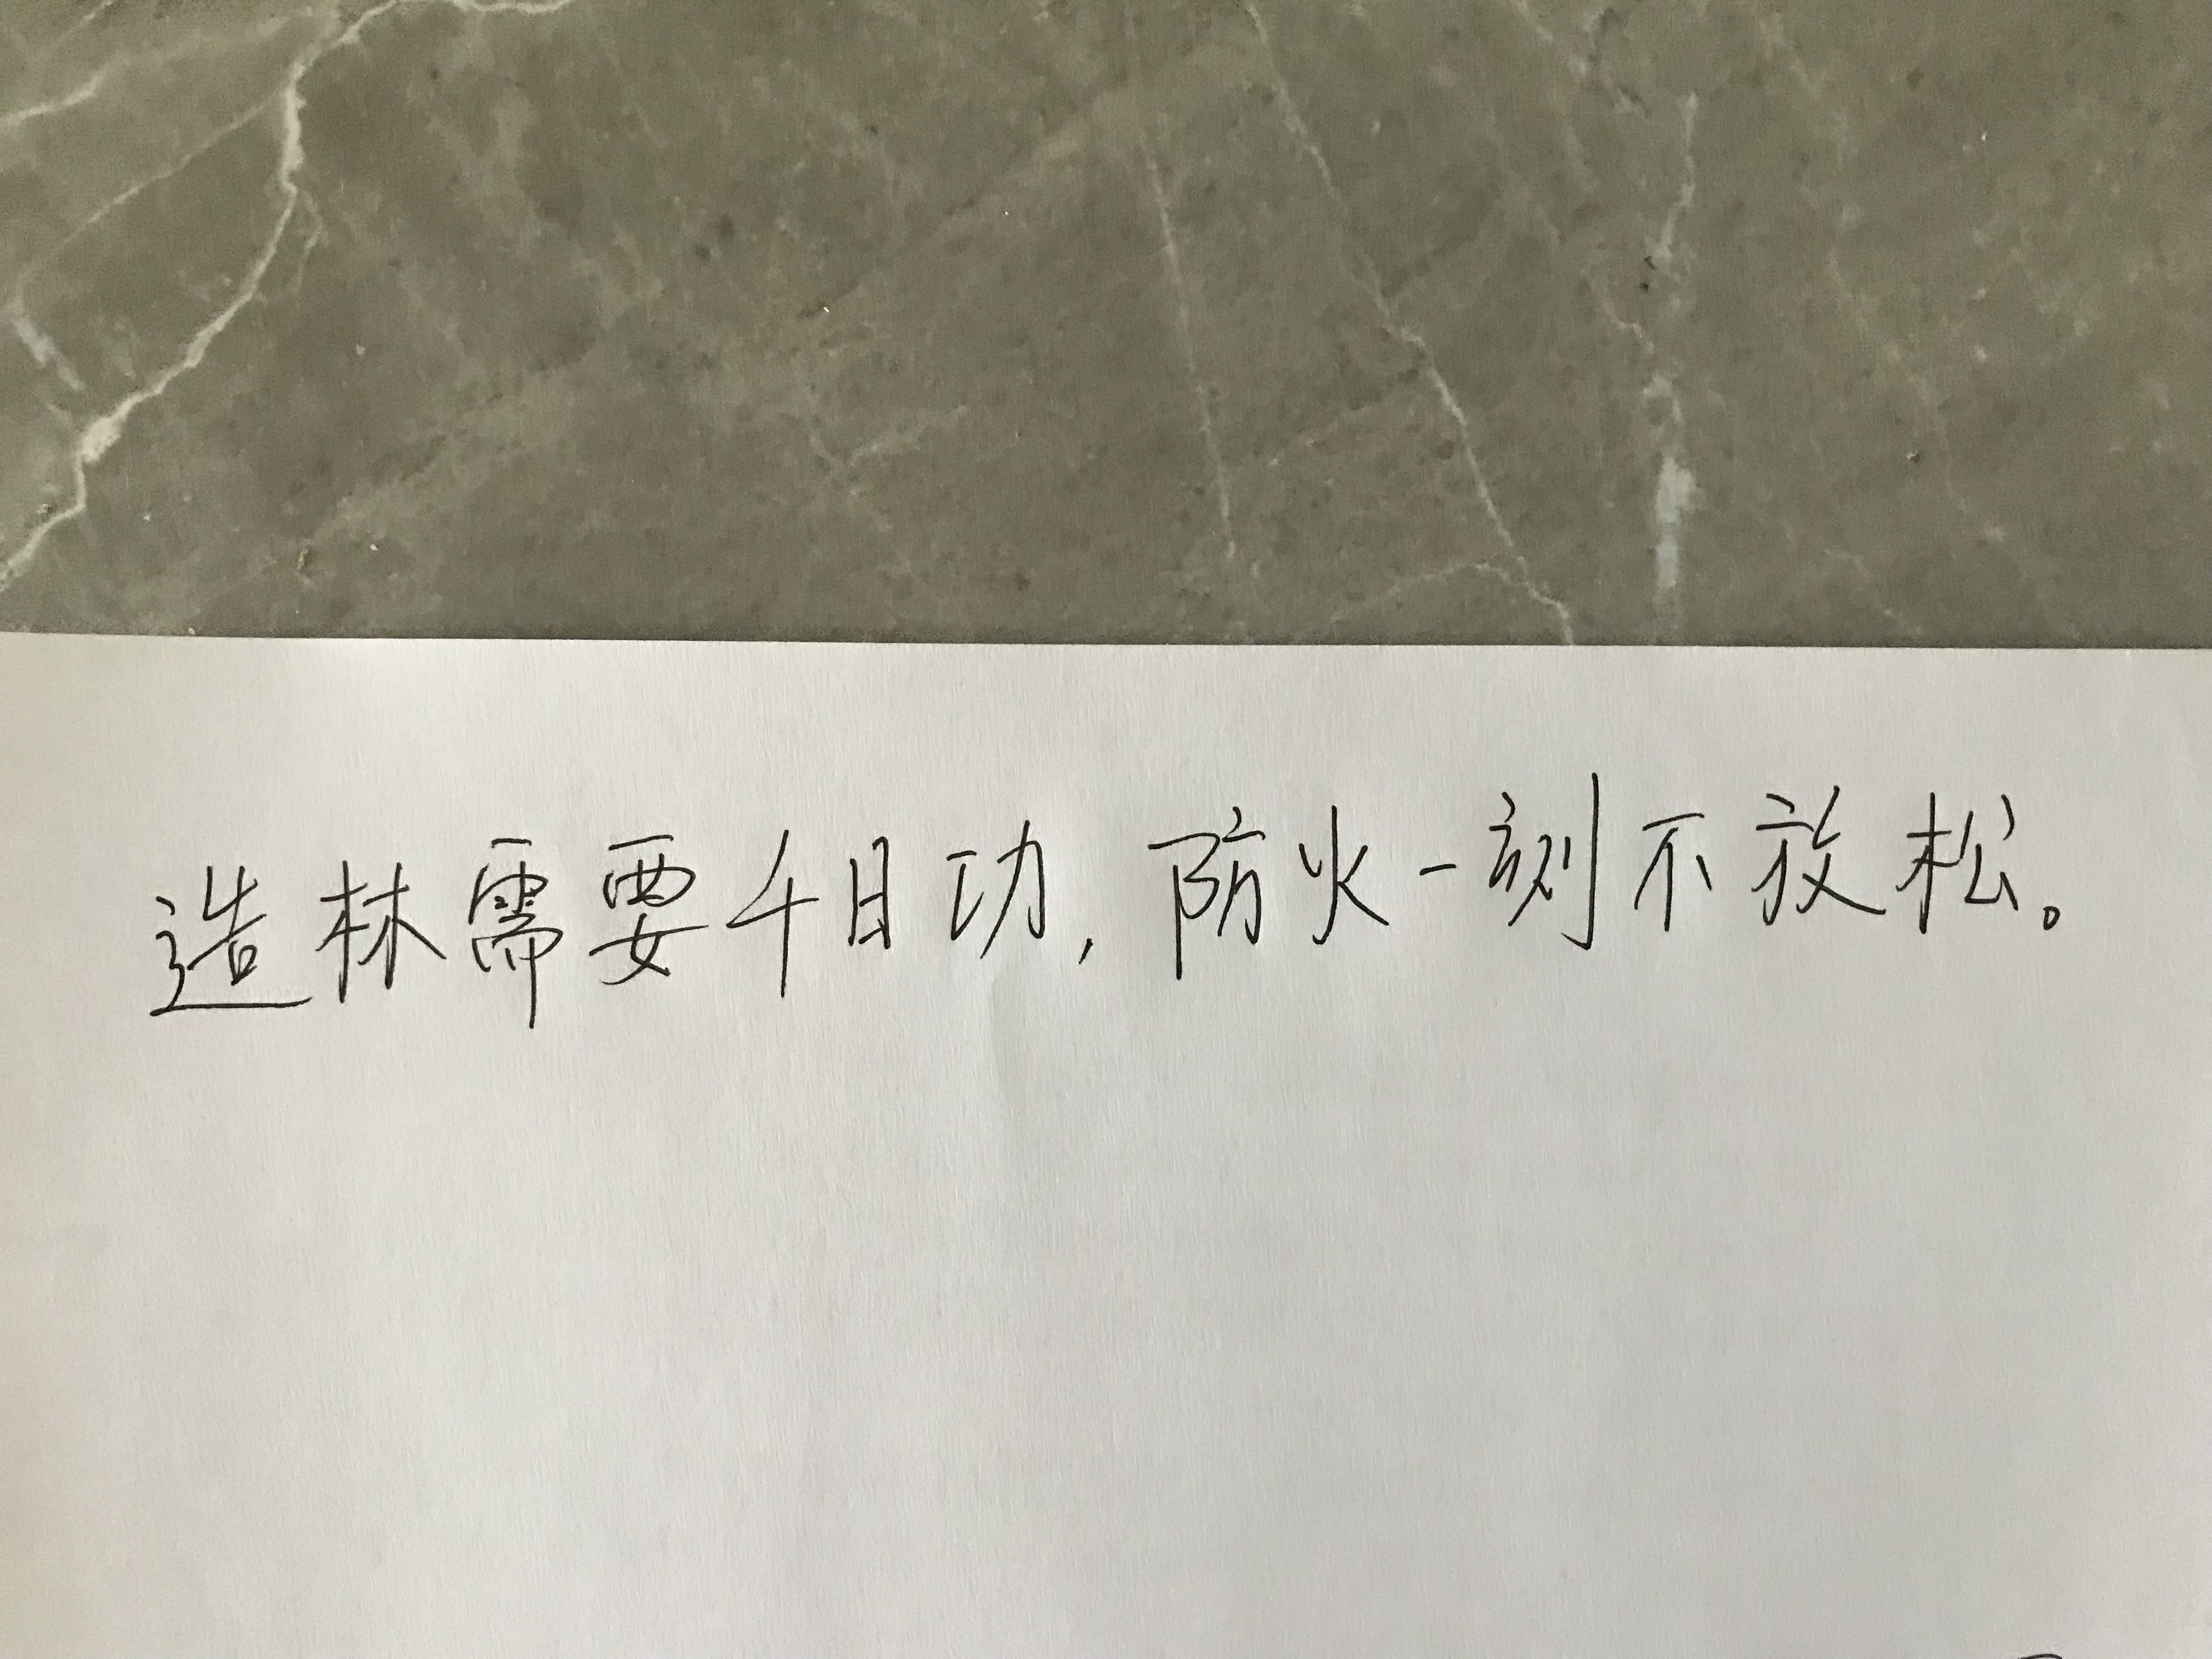 造林需要千日功，防火一刻不放松。